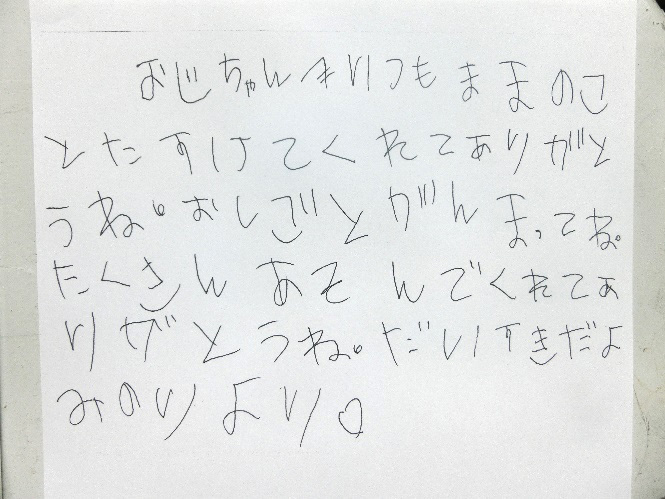 おじちゃんいりつもままのこ
とたすけてくれてありがと
うね。おしごとがんまってね。
たくさんあそんでくれてあ
りがとうね。だいすきだよ
みのりより。